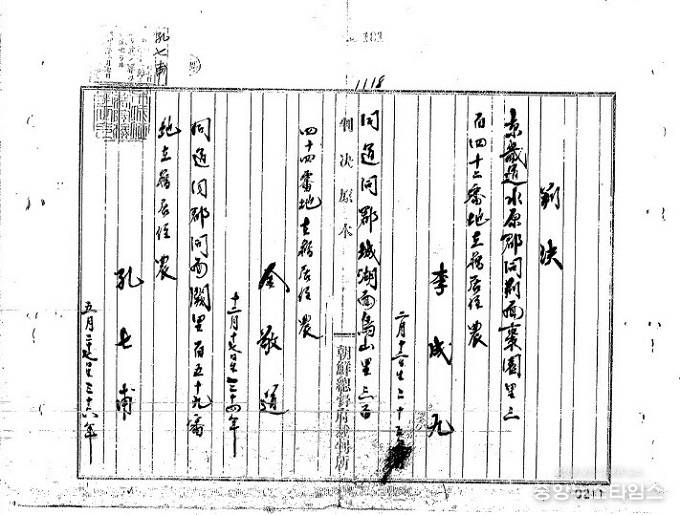 判決
京畿道水原郡面棗園里三
百四十二番地在籍居住農
李成九
二月十三日生二十五年
1118
同道同郡城湖面烏山里三百
判決原本
朝鮮總督府裁判所
四十四番地在籍居住農
金敬道
十二月十七日生三十四年
同道同郡同面闕里百五十九番
地在籍居住農
孔七甫
五月二十七日生三十六年
孔七甫
타임스